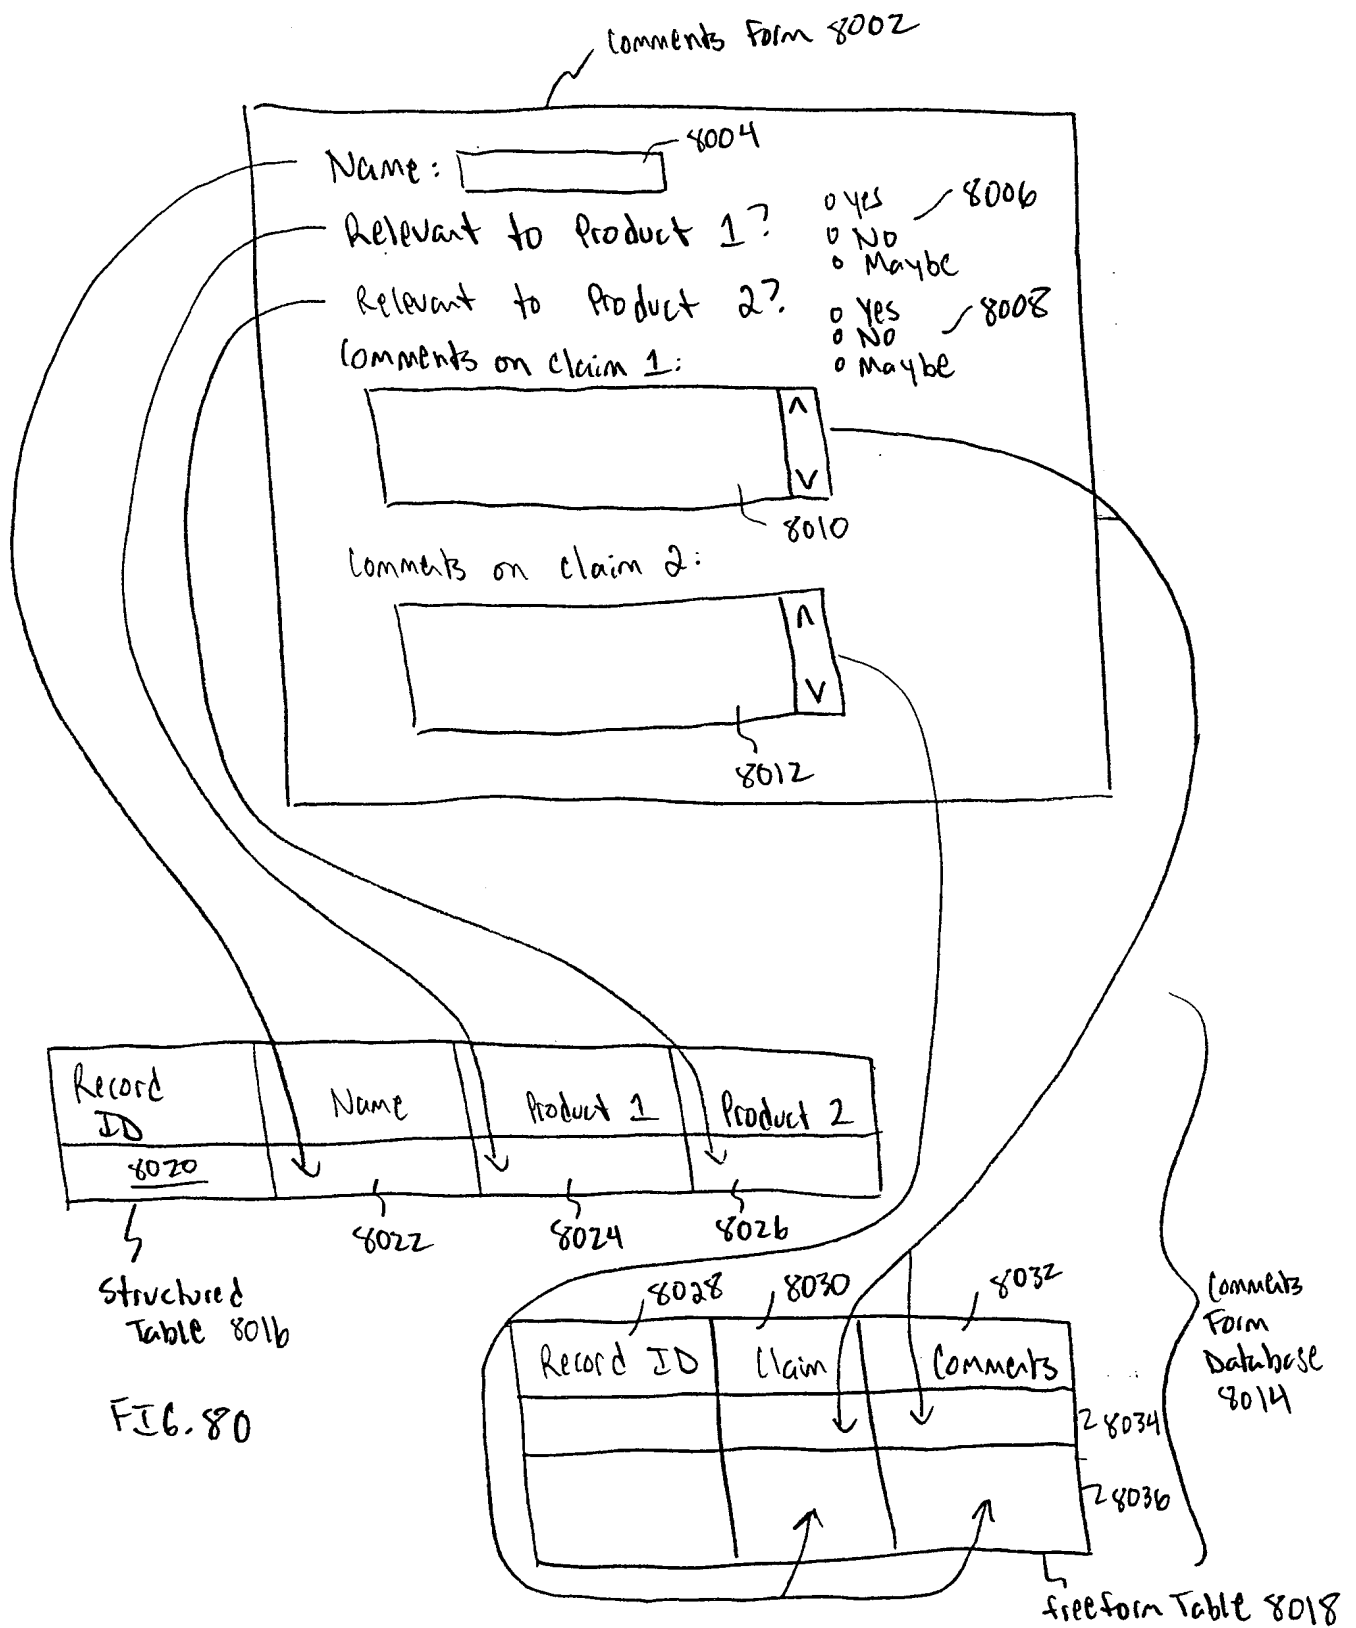 Comments Form 8002
Name: 8004
Relevant to Product 1?
o Yes
o No
o Maybe
8006
Relevant to Product 2?
o Yes
o No
o Maybe
8008
Comments on Claim 1:
8010
Comments on Claim 2:
8012
Record ID
Name
Product 1
Product 2
8020
8022
8024
8026
Structured
Table 8016
8028
8030
8032
Record ID
Claim
Comments
8034
8036
Comments
Form
Database
8014
freeform Table 8018
FIG. 80